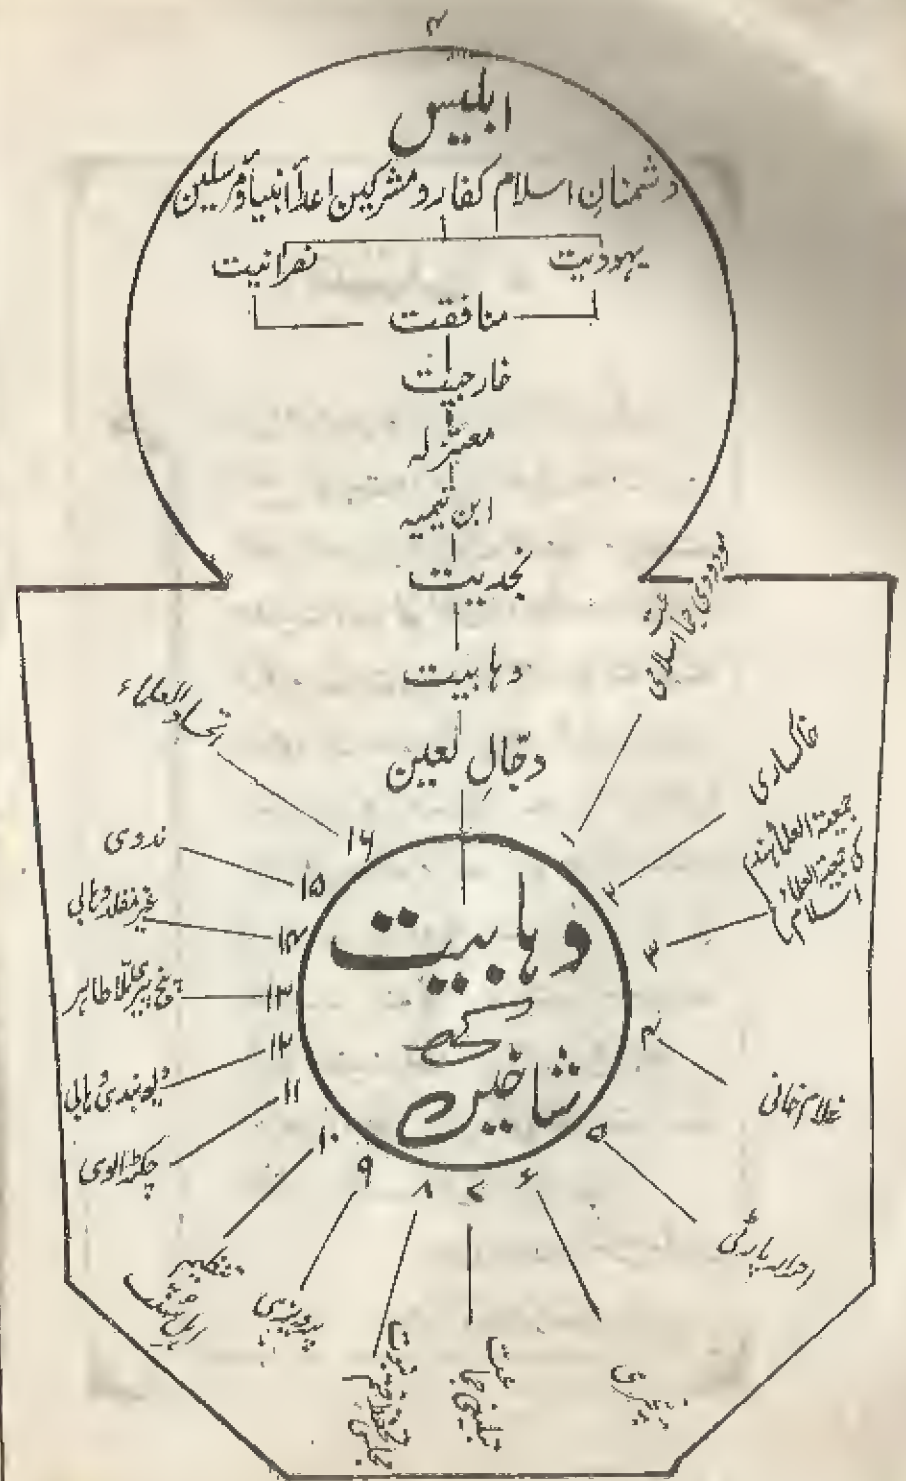 ۴
ابلیس
دشمنانِ اسلام کفار و مشرکین اعداٗ انبیاٗ و مرسلین
یہودیت
نصرانیت
منافقت
خارجیت
معتزلہ
ابن تیمیہ
نجدیت
وہابیت
دجّالِ لعین
وہابیت
کی
شاخیں
۱
مودودی جماعت اسلامی
۲
خاکساری
۳
جمعیۃ العلماٗ ہند
کی جمعیۃ العلماء
اسلام
۴
غلام خانی
۵
احرار پارٹی
۶
نیچری
۷
تبلیغی جماعت
۸
مجلس تحفظ ختم نبوت
۹
پرویزی
۱۰
تنظیم
اہل سنت
۱۱
چکڑالوی
۱۲
دیوبندی وہابی
۱۳
پنج پیری ملّا طاہر
۱۴
غیر مقلد وہابی
۱۵
ندوی
۱۶
اتحاد العلماء